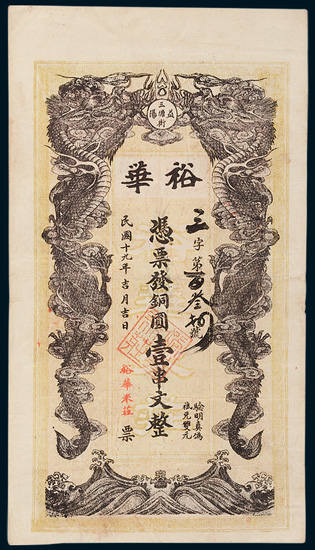 益陽
三堡街
裕華
三字第百叁拾號
憑票發銅圓壹串文整
驗明真偽
民國十九年吉月吉日
裕華米莊
票